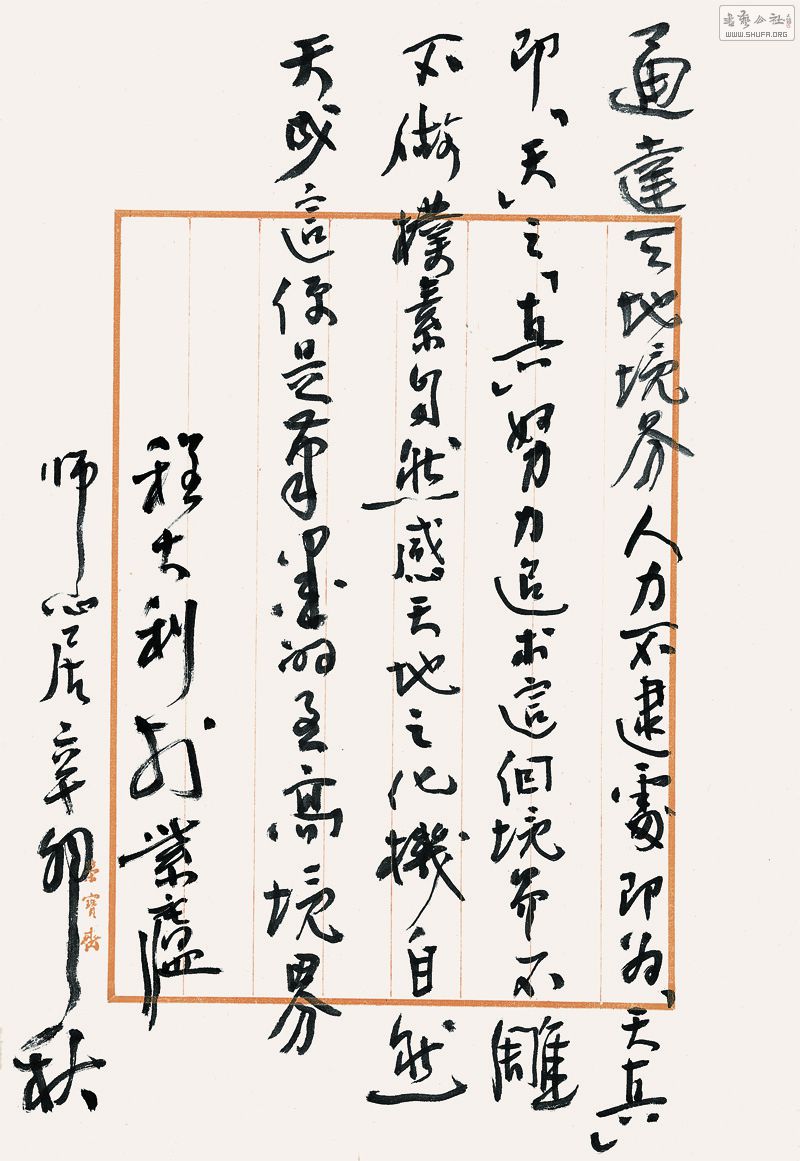 通達天地境界人力不逮處即為「天真」
即「天」之「真」努力追求這個境界不雕
不做樸素自然感天地之化機自然
天成這便是筆墨的至高境界
程大利於紫
师心居辛卯秋
榮寶齋
書藝公社
WWW.SHUFA.ORG